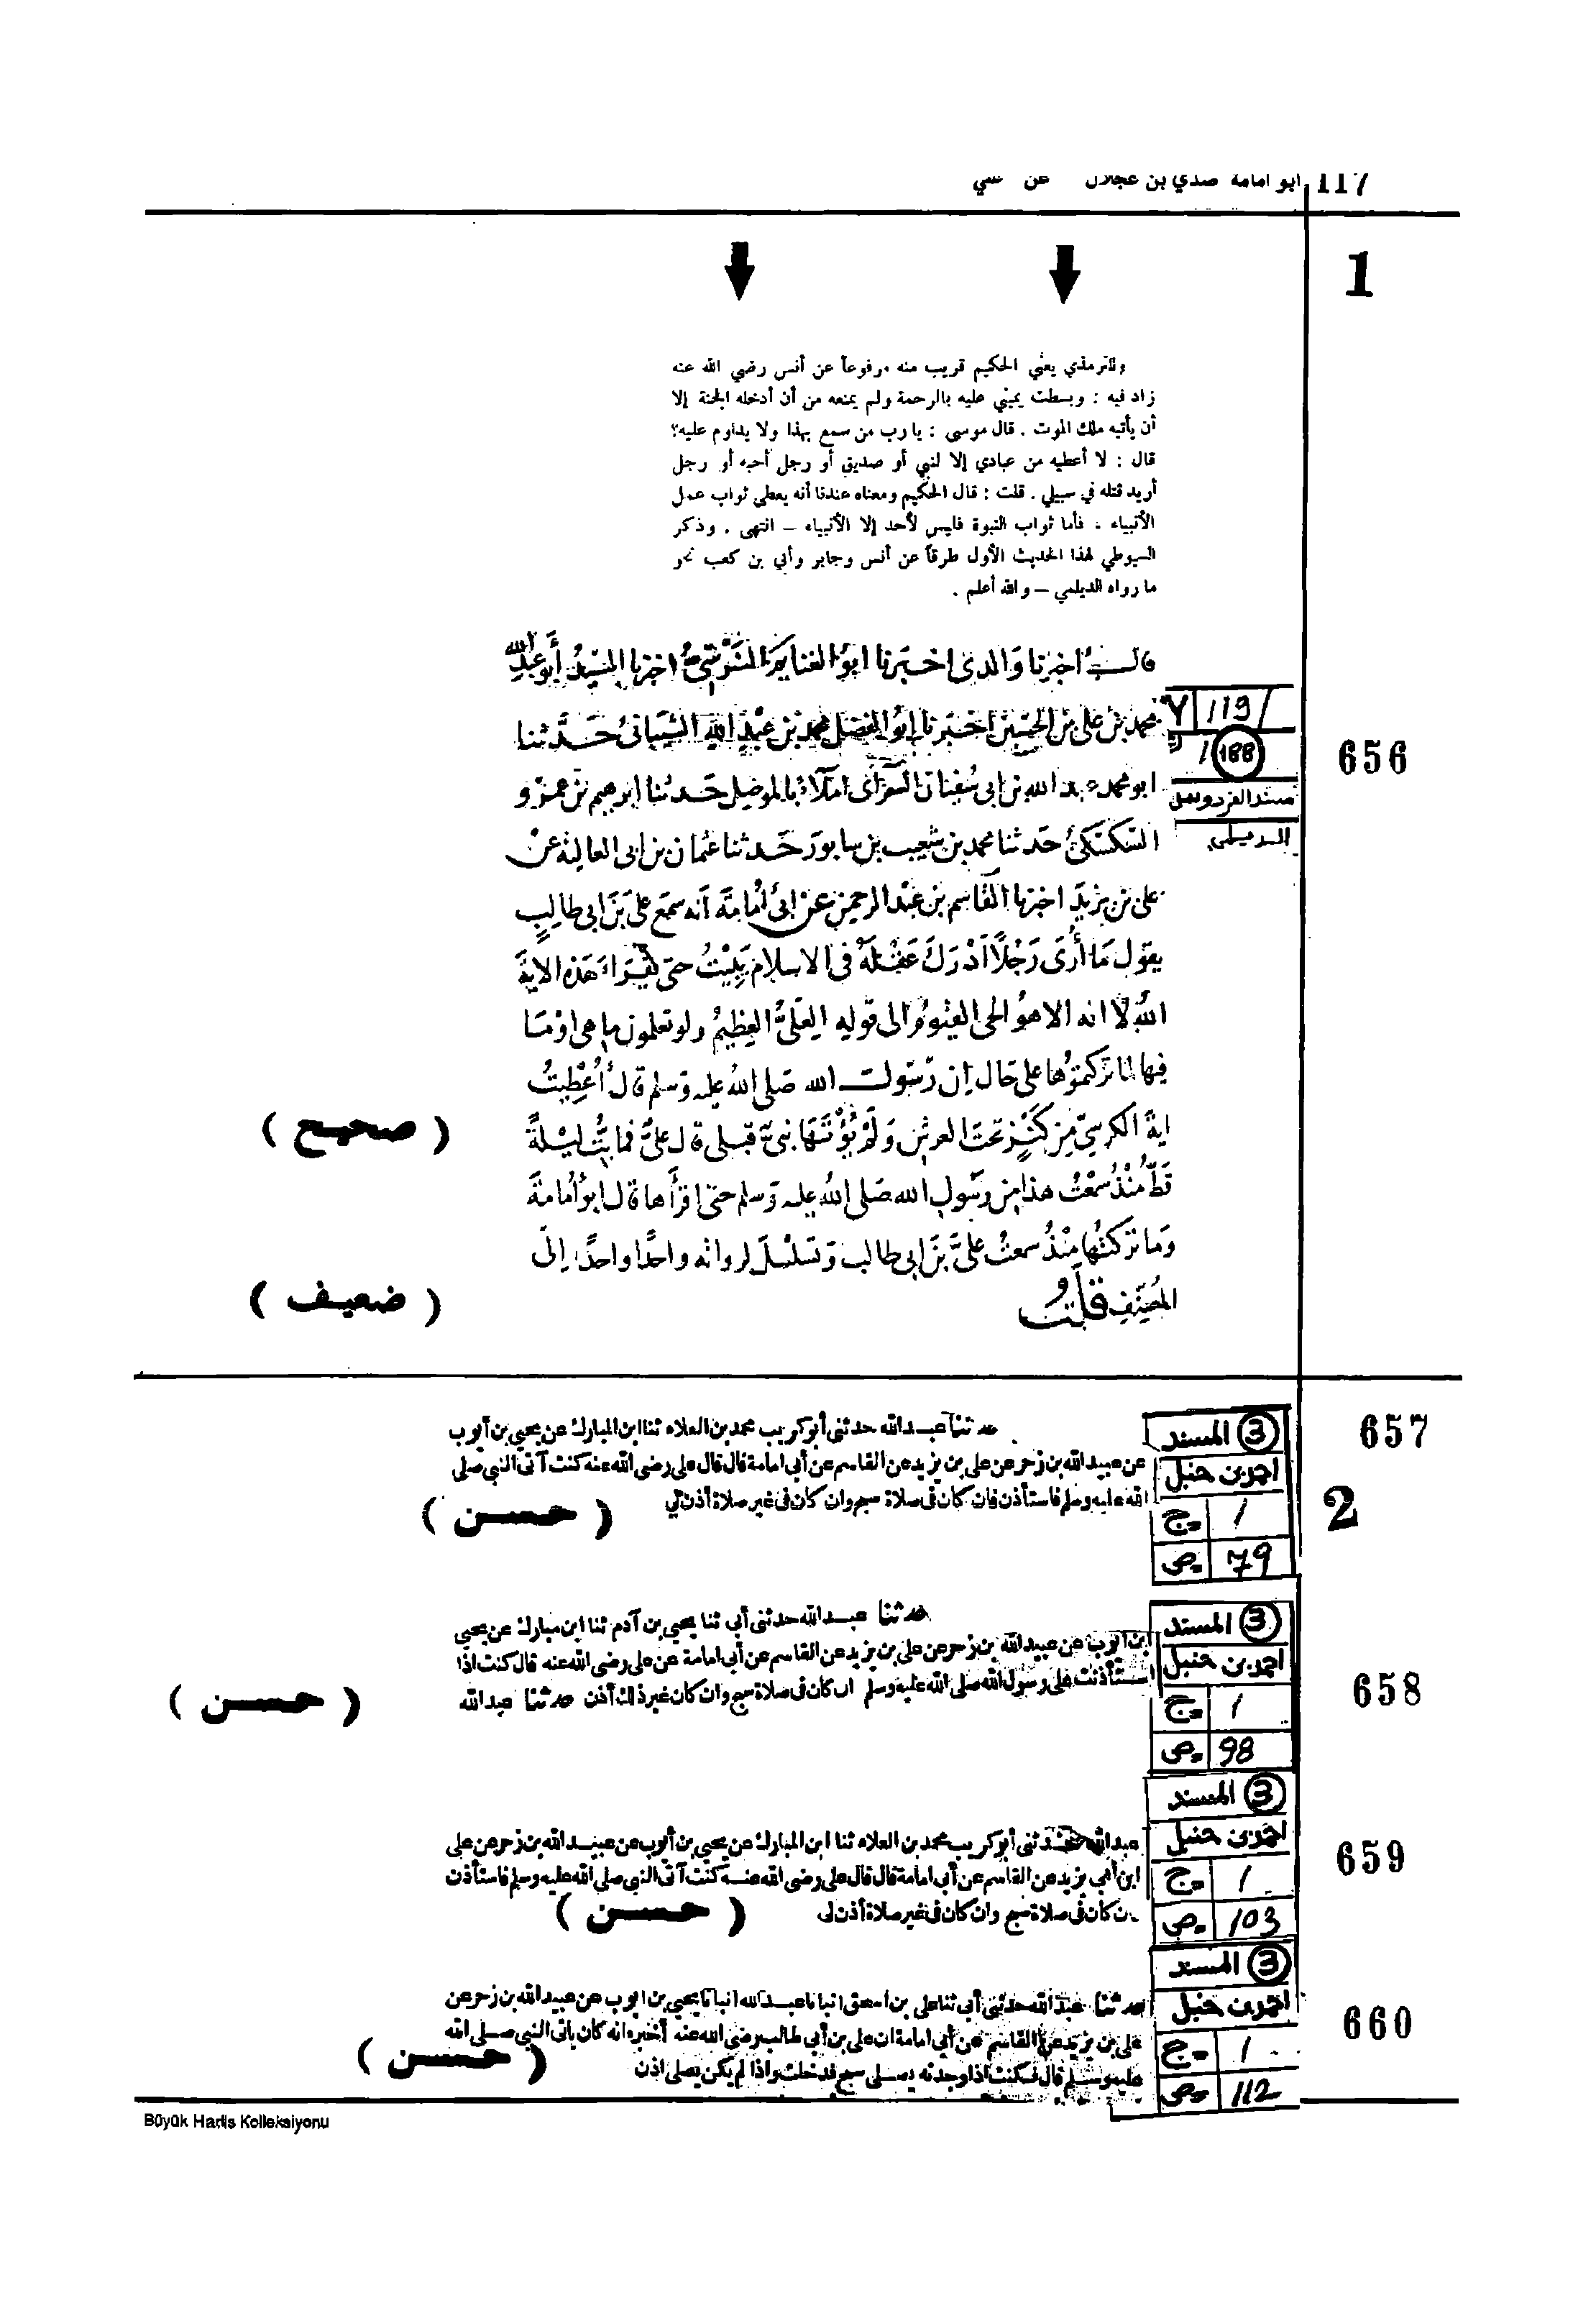 117 ابو امامة صدي بن عجلان عن علي
1
وللترمذي يعني الحكيم قريب منه مرفوعاً عن أنس رضي الله عنه
زاد فيه : وبسطت يميني عليه بالرحمة ولم يمنعه من أن أدخله الجنة إلا
أن يأتيه ملك الموت . قال موسى : يا رب من سمع بهذا ولا يداوم عليه؟
قال : لا أعطيه من عبادي إلا لنبي أو صديق أو رجل أحبه أو رجل
أريد قتله في سبيلي . قلت : قال الحكيم ومعناه عندنا أنه يعطى ثواب عمل
الأنبياء ، فأما ثواب النبوة فليس لأحد إلا الأنبياء – انتهى . وذكر
السيوطي لهذا الحديث الأول طرقاً عن أنس وجابر وأبي بن كعب نحو
ما رواه الديلمي – والله أعلم .
قال اخبرنا والدي اخبرنا ابو الغنايم اخبرنا السيد أبو عبد الله
محمد بن علي بن الحسين اخبرنا ابو الفضل محمد بن عبد الله الشيباني حدثنا
ابو محمد عبد الله بن ابي سفيان املاء بالموصل حدثنا ابرهيم بن عمرو
السكسكي حدثنا محمد بن شعيب بن سابور حدثنا عثمان بن ابي العاتكة عن
علي بن يزيد اخبرنا القاسم بن عبد الرحمن عن ابي أمامة أنه سمع علي بن ابي طالب
يقول ما أرى رجلاً أدرك عقله في الاسلام يبيت حتى يقراء هذه الاية
الله لا اله الا هو الحي القيوم الى قوله العلي العظيم ولو تعلمون ما هي او ما
فيها لما تركتموها على حال ان رسول الله صلى الله عليه وسلم قال أعطيت
اية الكرسي من كنز تحت العرش ولم يؤتها نبي قبلي قال علي فما بت ليلة
قط منذ سمعت هذا من رسول الله صلى الله عليه وسلم حتى اقرأها قال ابو أمامة
وما تركتها منذ سمعت علي بن ابي طالب وتسلسل لرواته واحدا واحدا إلى
المصنف قلت
119/ ٧
188
مسند الفردوس
الديلمي
656
( صحيح )
( ضعيف )
حدثنا عبد الله حدثني أبو كريب محمد بن العلاء ثنا ابن المبارك عن يحيى بن أيوب
عن عبيد الله بن زحر عن علي بن يزيد عن القاسم عن أبي امامة قال قال علي رضي الله عنه كنت آتي النبي صلى
الله عليه وسلم فاستأذن فان كان في صلاة سبح وان كان في غير صلاة أذن لي
( حسن )
3 المسند
احمد بن حنبل
ج 1
ص 79
657
2
حدثنا عبد الله حدثني أبي ثنا يحيى بن آدم ثنا ابن مبارك عن يحيى
ابن ايوب عن عبيد الله بن زحر عن علي بن يزيد عن القاسم عن أبي امامة عن علي رضي الله عنه قال كنت اذا
استأذنت على رسول الله صلى الله عليه وسلم ان كان في صلاة سبح وان كان غير ذلك أذن حدثنا عبد الله
( حسن )
3 المسند
احمد بن حنبل
ج 1
ص 98
658
عبد الله حدثني أبو كريب محمد بن العلاء ثنا ابن المبارك عن يحيى بن أيوب عن عبيد الله بن زحر عن علي
ابن أبي يزيد عن القاسم عن أبي امامة قال قال علي رضي الله عنه كنت آتي النبي صلى الله عليه وسلم فاستأذن
ن كان في صلاة سبح وان كان في غير صلاة أذن لي
( حسن )
3 المسند
احمد بن حنبل
ج 1
ص 103
659
حدثنا عبد الله حدثني أبي ثنا علي بن اسحق انبأنا عبد الله انبأنا يحيى بن ايوب عن عبيد الله بن زحر عن
علي بن يزيد عن القاسم عن أبي امامة ان علي بن أبي طالب رضي الله عنه أخبره انه كان ياتي النبي صلى الله
عليه وسلم قال فكنت اذا وجدته يصلي سبح فدخلت واذا لم يكن يصلي اذن
( حسن )
3 المسند
احمد بن حنبل
ج 1
ص 112
660
Büyük Hadis Kolleksiyonu